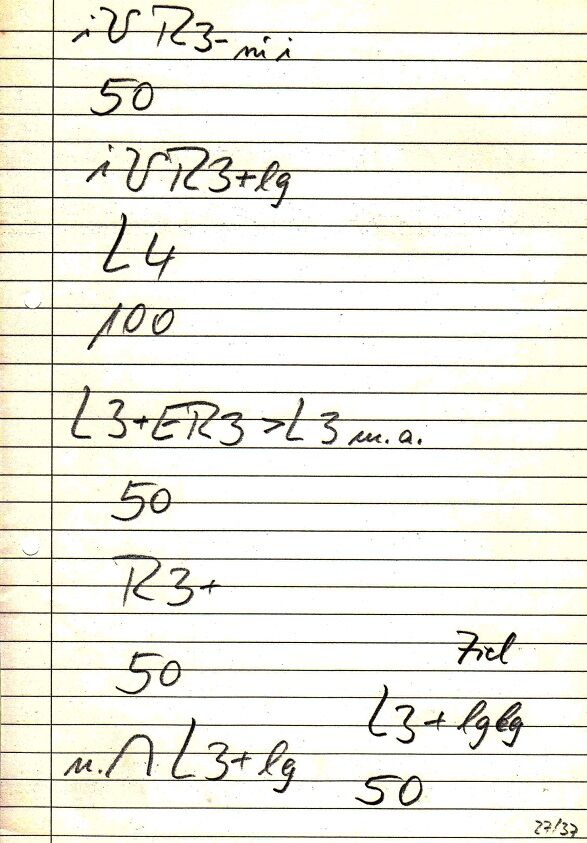 iVR3- mi i
50
iVR3+lg
L4
100
L3+ER3>L3 m.a.
50
R3+
50
u.∩L3+lg
Ziel
L3+lglg
50
27/37